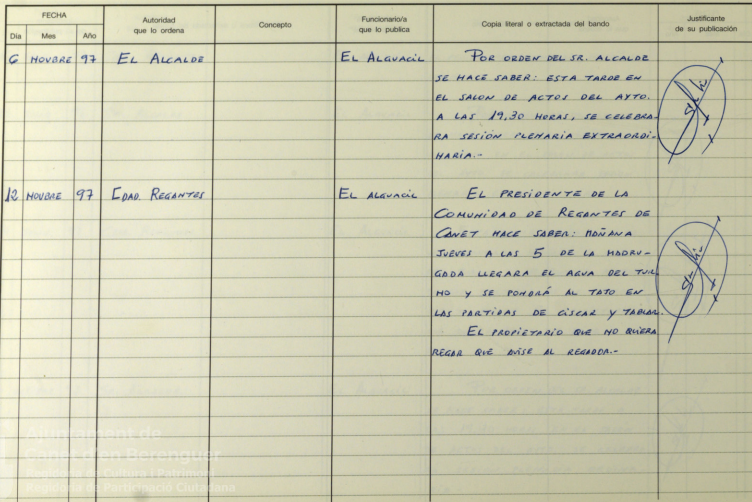 FECHA
Autoridad
que lo ordena
Concepto
Funcionario/a
que lo publica
Copia literal o extractada del bando
Justificante
de su publicación
Día Mes Año
6 NOVBRE 97 EL ALCALDE EL ALGUACIL POR ORDEN DEL SR. ALCALDE
SE HACE SABER: ESTA TARDE EN
EL SALON DE ACTOS DEL AYTO.
A LAS 19,30 HORAS, SE CELEBRA-
RA SESIÓN PLENARIA EXTRAORDI-
NARIA.-
12 NOVBRE 97 CDAD. REGANTES EL ALGUACIL EL PRESIDENTE DE LA
COMUNIDAD DE REGANTES DE
CANET HACE SABER: MAÑANA
JUEVES A LAS 5 DE LA MADRU-
GADA LLEGARA EL AGUA DEL TUR
NO Y SE PONDRÁ AL TATO EN
LAS PARTIDAS DE CISCAR Y TABLAR.
EL PROPIETARIO QUE NO QUIERA
REGAR QUE AVISE AL REGADOR.-
Ajuntament de
Canet d'en Berenguer
Regidoria de Cultura i Patrimoni
Regidoria de Participació Ciutadana